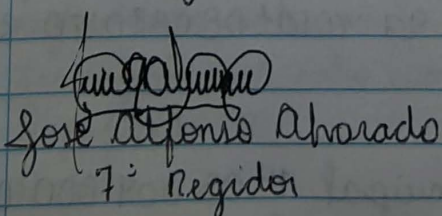 José Alfonso Alvarado
7° Regidor